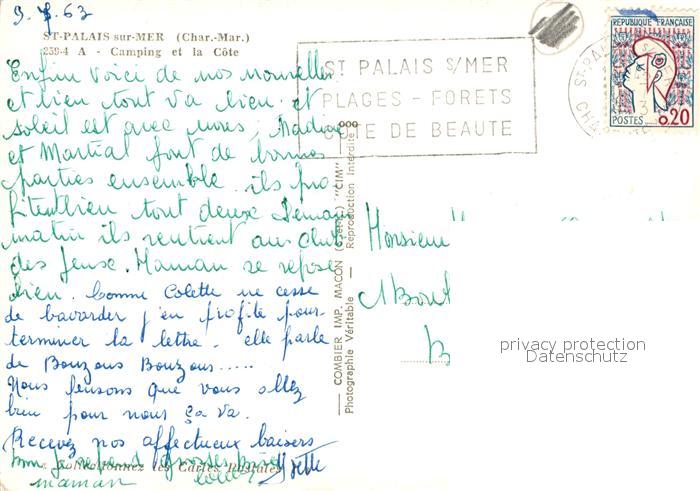 9.7.63
ST-PALAIS sur-MER (Char.-Mar.)
259-4 A - Camping et la Côte
Enfin voici de nos nouvelles
et bien tout va bien et
soleil est avec nous,
et Martial font de bonnes
parties ensemble. ils pro
fitent bien tout deux
matin ils rentrent au club
des jeux. Maman se repose
bien. Comme Colette ne cesse
de bavarder j'en profite pour
terminer la lettre. elle parle
de Bouzous Bouzous.....
Nous pensons que vous allez
bien pour nous ça va.
Recevez nos affectueux baisers
Collectionnez les Cartes Postales
grosses bises
maman Colette Yvette
ST PALAIS S/MER
PLAGES - FORETS
COTE DE BEAUTE
REPUBLIQUE FRANÇAISE
POSTES 0,20
COMBIER IMP. MACON (S.-et-L.) "CIM"
Photographie Véritable - Reproduction Interdite
Monsieur
B
privacy protection
Datenschutz